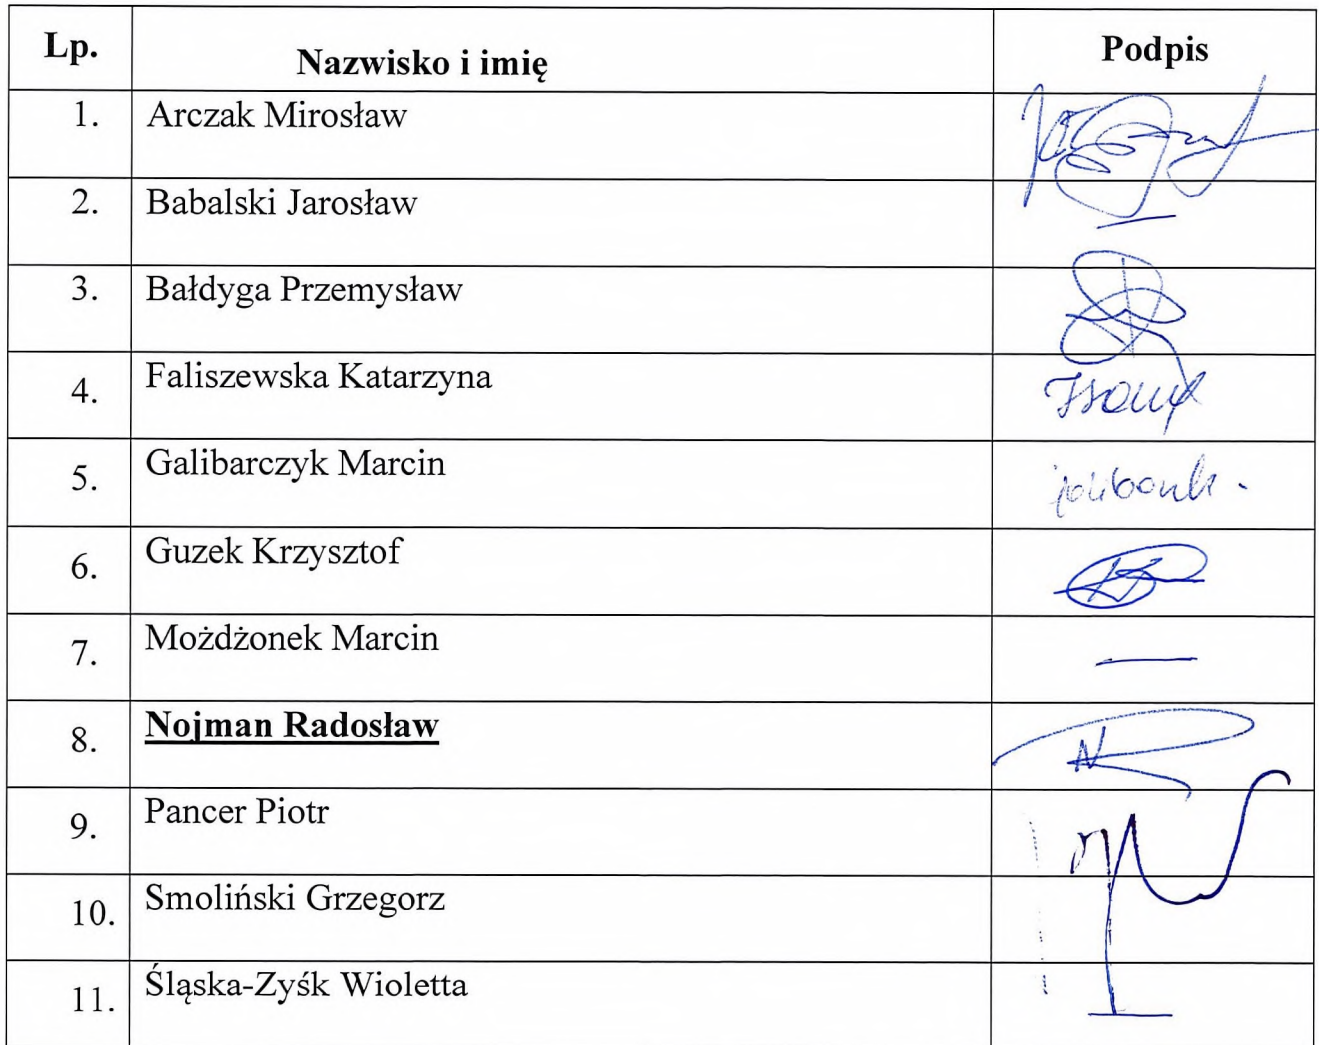 Lp. Nazwisko i imię Podpis
1. Arczak Mirosław
2. Babalski Jarosław
3. Bałdyga Przemysław
4. Faliszewska Katarzyna
5. Galibarczyk Marcin
6. Guzek Krzysztof
7. Możdżonek Marcin —
8. Nojman Radosław
9. Pancer Piotr
10. Smoliński Grzegorz
11. Śląska-Zyśk Wioletta